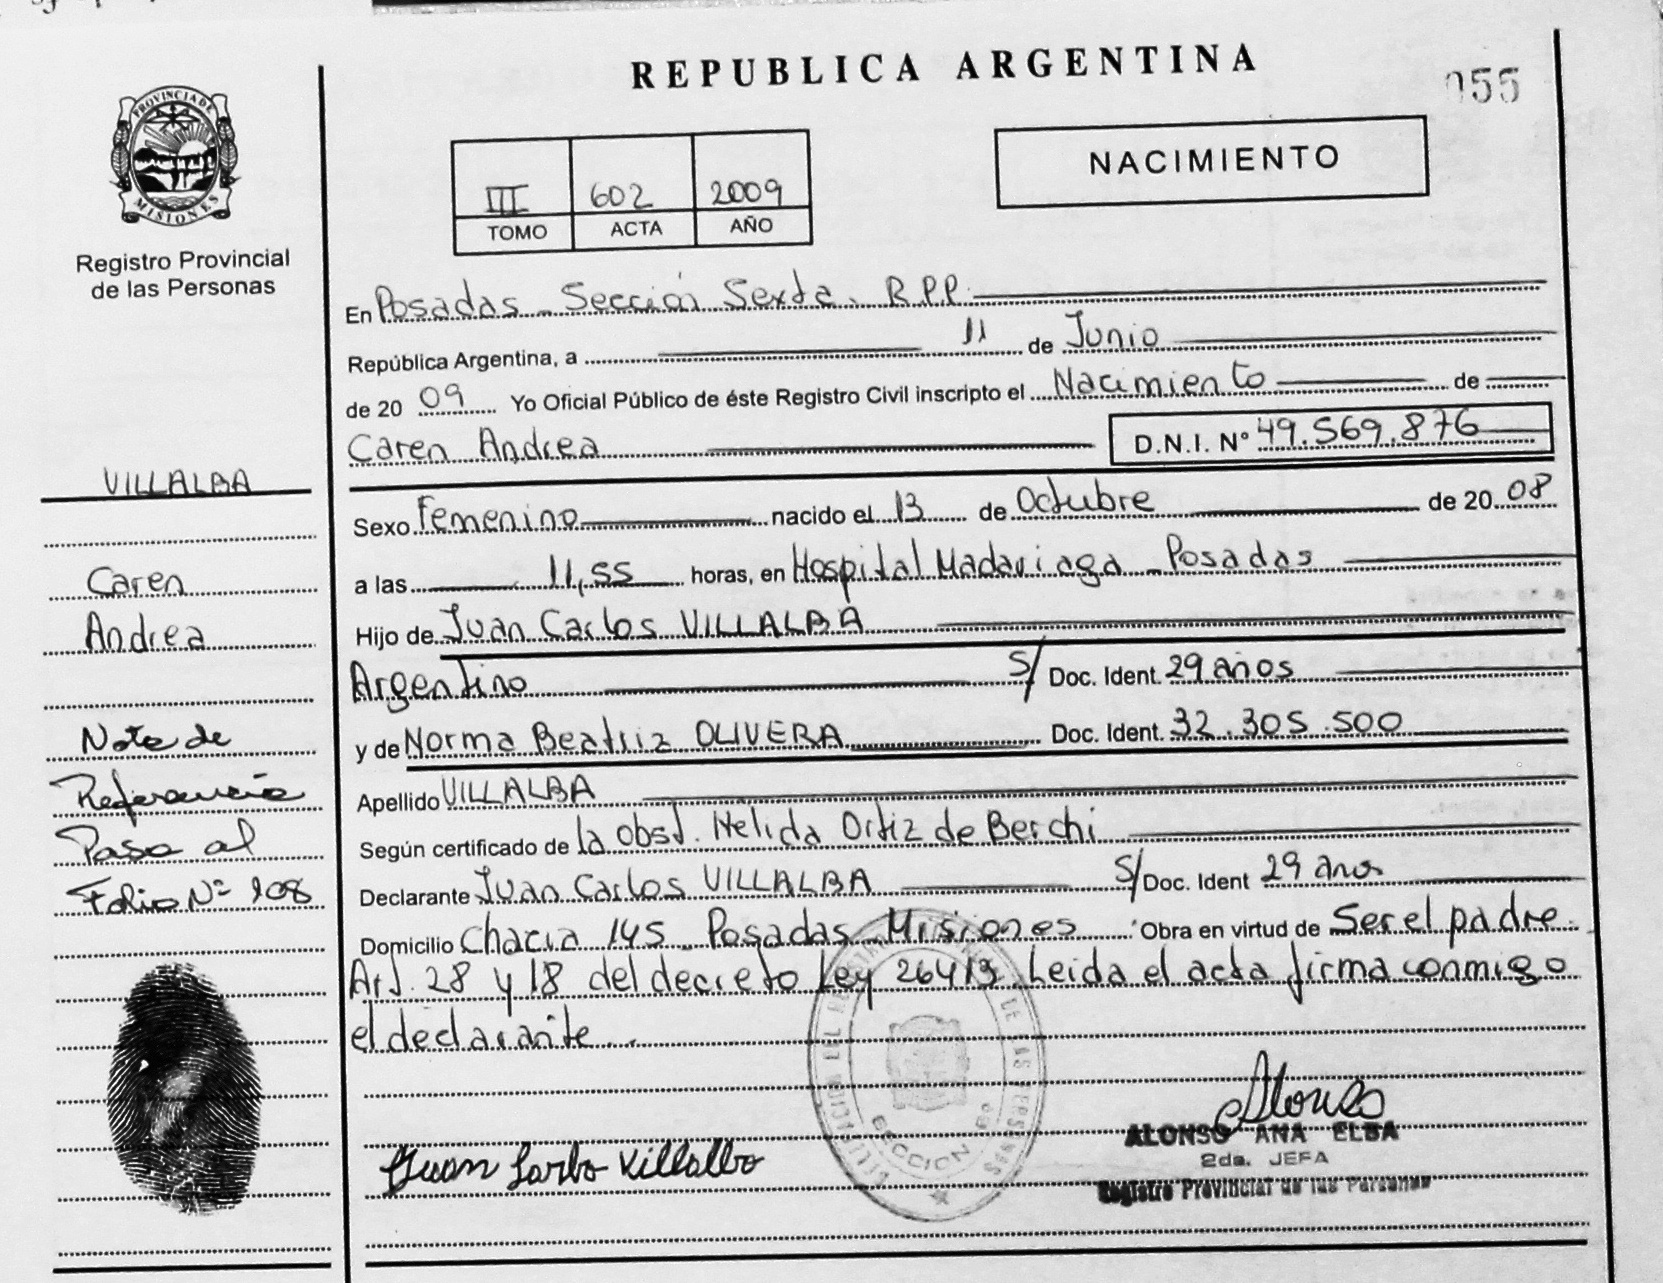 REPUBLICA ARGENTINA
055
PROVINCIA DE
MISIONES
Registro Provincial
de las Personas
III 602 2009
TOMO ACTA AÑO
NACIMIENTO
En Posadas - Sección Sexta. R.P.P.
República Argentina, a 11 de Junio
de 20 09 Yo Oficial Público de éste Registro Civil inscripto el Nacimiento de
Caren Andrea D.N.I. Nº 49.569.876
Sexo Femenino nacido el 13 de Octubre de 20 08
a las 11,55 horas, en Hospital Madariaga - Posadas
Hijo de Juan Carlos VILLALBA
Argentino S/ Doc. Ident. 29 años
y de Norma Beatriz OLIVERA Doc. Ident. 32.305.500
Apellido VILLALBA
Según certificado de la obst. Nelida Ortiz de Berchi
Declarante Juan Carlos VILLALBA S/ Doc. Ident 29 años
Domicilio Chacra 145 - Posadas - Misiones Obra en virtud de Ser el padre.
Art. 28 y 18 del decreto Ley 26413. Leida el acta firma conmigo
el declarante..
VILLALBA
Caren
Andrea
Nota de
Referencia
Pasa al
Folio Nº 108
SECCION 6º
Juan Carlos Villalba
Alonso
ALONSO ANA ELBA
2da. JEFA
Registro Provincial de las Personas